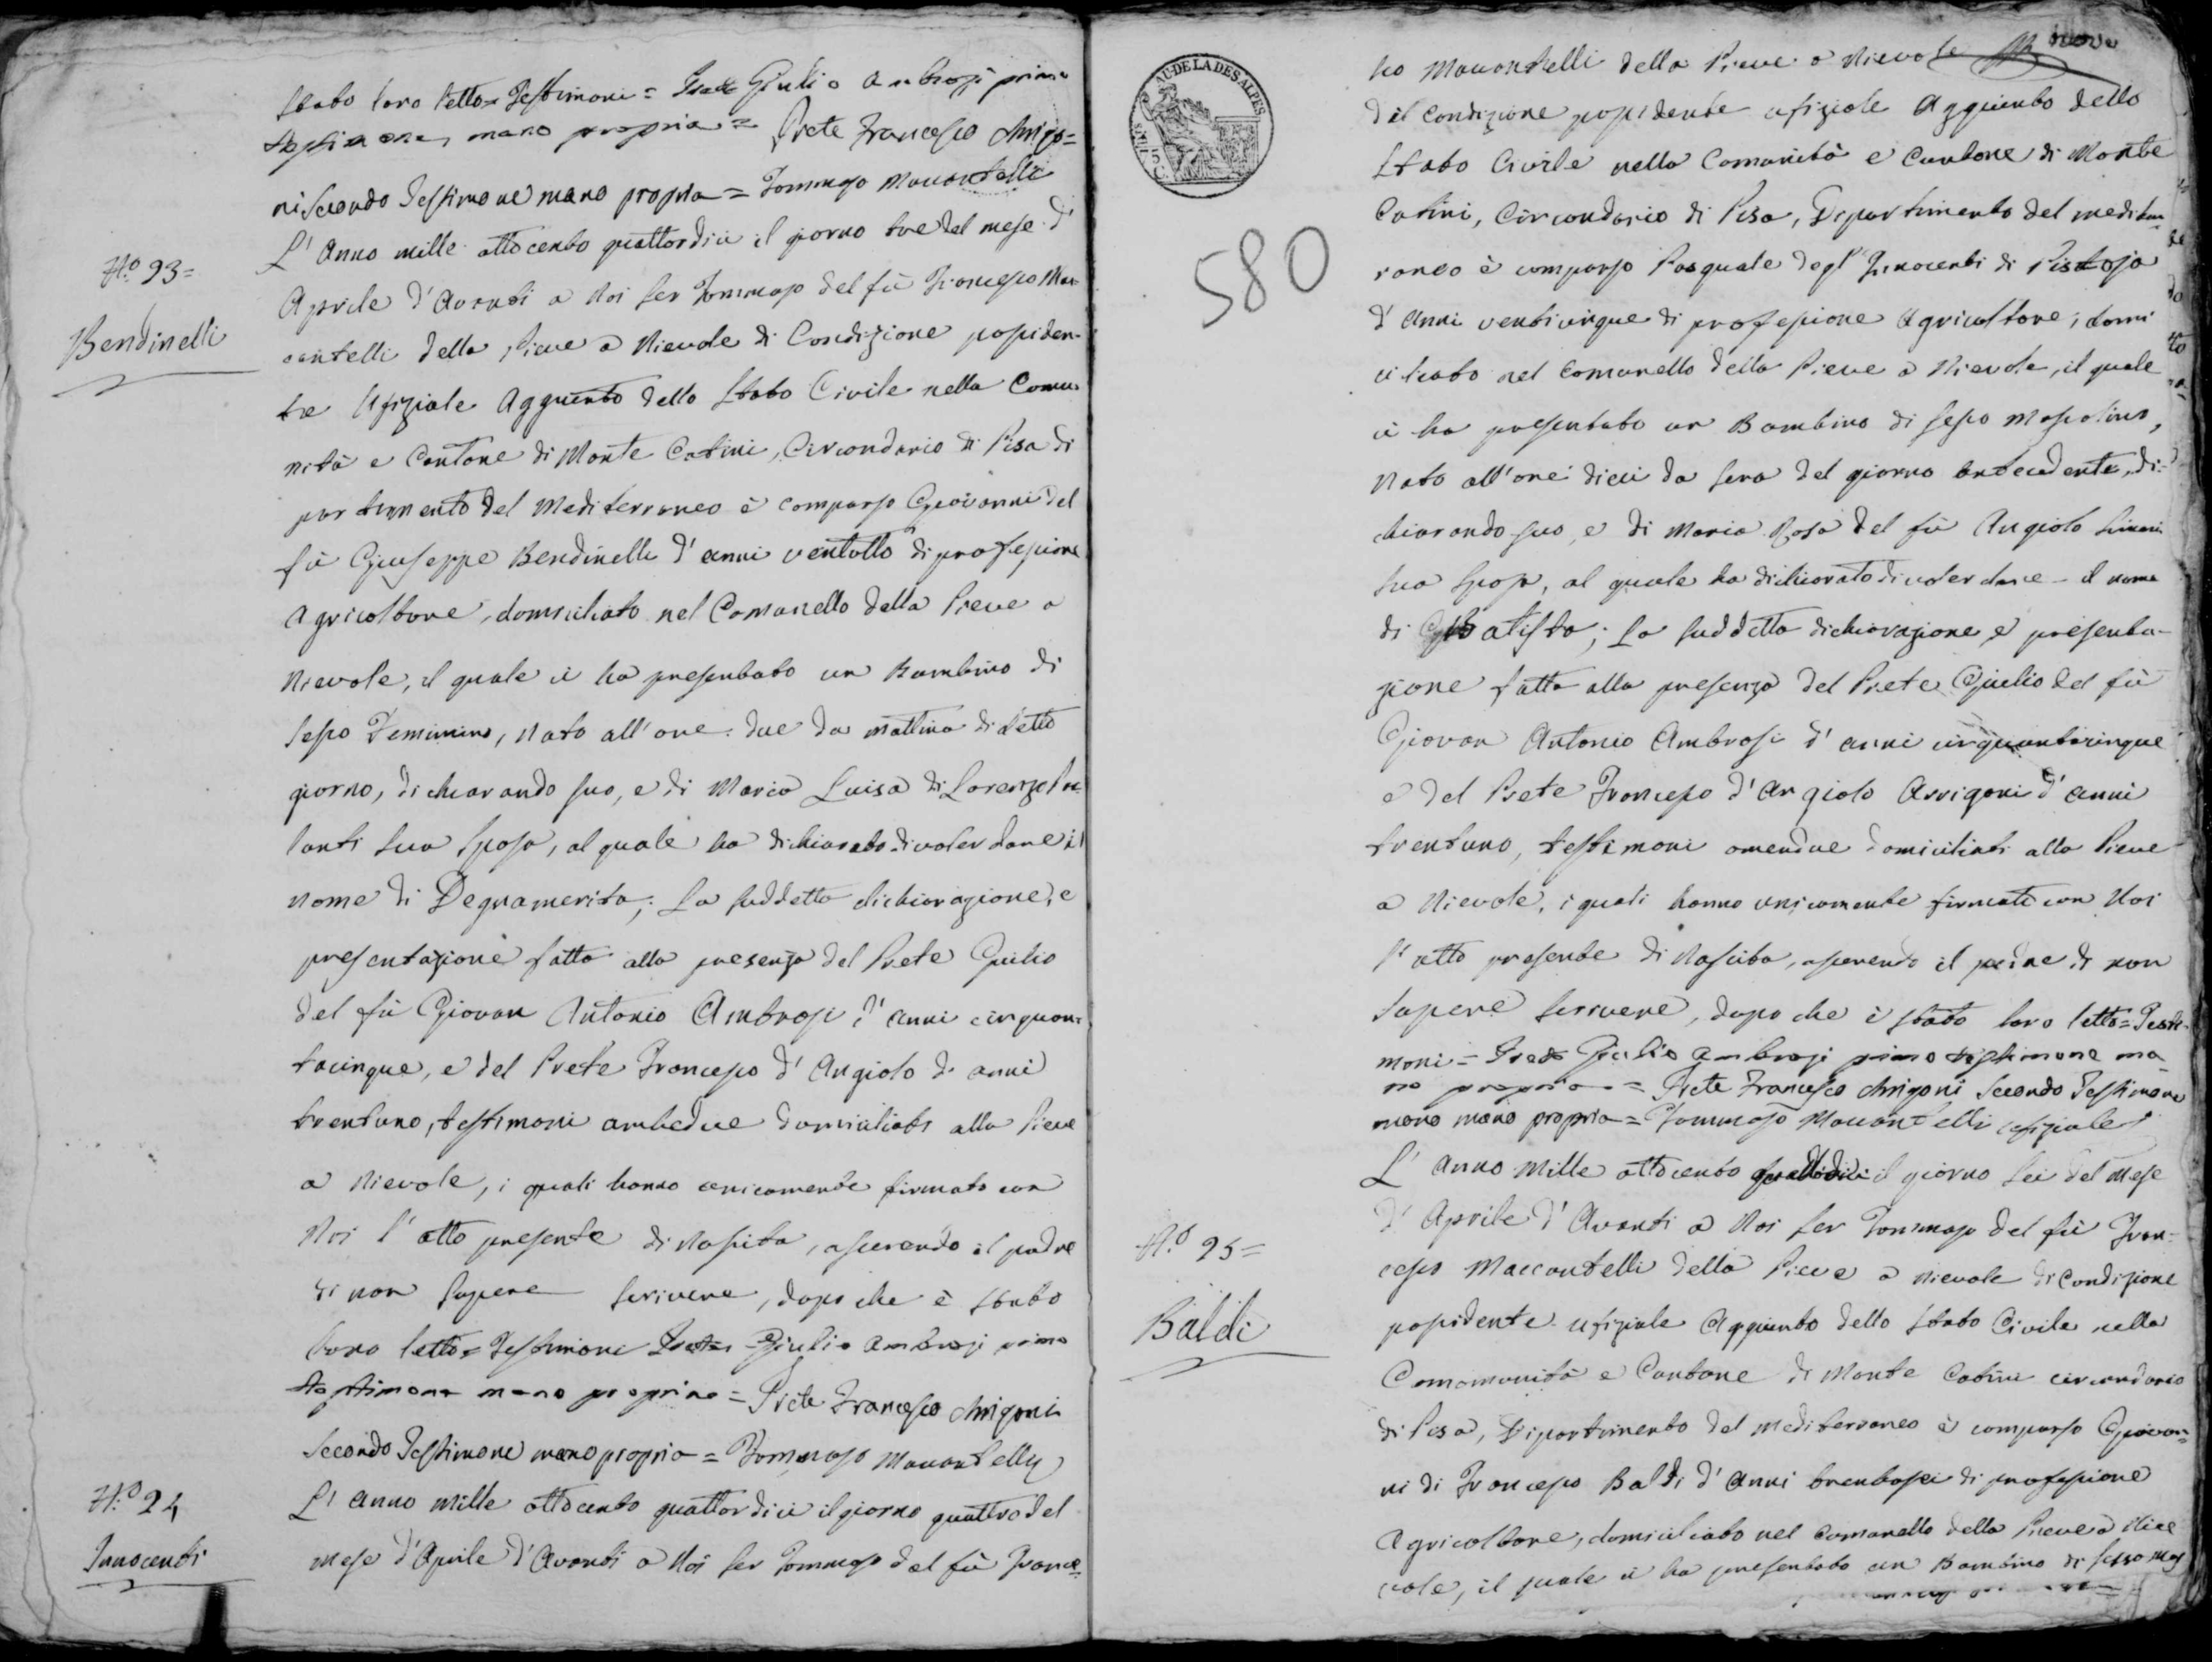 stato loro letto = Testimoni = Prete Giulio Ambrogi primo
testimone mano propria = Prete Francesco Arrigo=
ni Secondo Testimone mano propria = Tommaso Maccantelli
N.º 93=
Bendinelli
L'Anno mille ottocento quattordici il giorno tre del mese d'
Aprile d'Avanti a Noi Ser Tommaso del fù Francesco Mac-
cantelli della Pieve a Nievole di Condizione possiden-
te Ufiziale Aggiunto dello Stato Civile nella Comu-
nità e Cantone di Monte Catini, Circondario di Pisa di
partimento del Mediterraneo è comparso Giovanni del
fù Giuseppe Bendinelli d'anni ventotto di professione
Agricoltore, domiciliato nel Comunello della Pieve a
Nievole, il quale ci ha presentato un Bambino di
Sesso Feminino, Nato all'ore due da mattina di detto
giorno, dichiarando suo, e di Maria Luisa di Lorenzo
lanti sua Sposa, al quale ha dichiarato di voler dare il
nome di Degnamerita; La suddetta dichiarazione, e
presentazione fatta alla presenza del Prete Giulio
del fù Giovan Antonio Ambrosi d'anni cinquan-
tacinque, e del Prete Francesco d'Angiolo di anni
trentuno, testimoni ambedue domiciliati alla Pieve
a Nievole, i quali hanno unicamente firmato con
Noi l'atto presente di Nascita, asserendo il padre
di non sapere scrivere, dopo che è stato
loro letto = Testimoni Prete Giulio Ambrogi primo
testimone mano propria = Prete Francesco Arrigoni
Secondo Testimone mano propria = Tommaso Maccantelli
N.º 24
Innocenti
L'anno mille ottocento quattordici il giorno quattro del
mese d'Aprile d'Avanti a Noi Ser Tommaso del fù France=
AU-DE LA DES ALPES
580
nove
sco Maccantelli della Pieve a Nievole
di condizione possidente ufiziale Aggiunto dello
Stato Civile nella Comunità e Cantone di Monte
Catini, Circondario di Pisa, Dipartimento del mediter-
raneo è comparso Pasquale degl'Innocenti di Pistoja
d'Anni venticinque di professione Agricoltore, domi
ciliato nel Comunello della Pieve a Nievole, il quale
ci ha presentato un Bambino di sesso Mascolino,
Nato all'ore dieci da sera del giorno antecedente, di-
chiarando suo, e di Maria Rosa del fù Angiolo Simoni
sua Sposa, al quale ha dichiarato di voler dare il nome
di Gio Batista; La suddetta dichiarazione e presenta-
zione fatta alla presenza del Prete Giulio del fù
Giovan Antonio Ambrosi d'anni cinquantacinque
e del Prete Francesco d'Angiolo Arrigoni d'anni
trentuno, testimoni amendue domiciliati alla Pieve
a Nievole, i quali hanno unicamente firmato con Noi
l'atto presente di Nascita, asserendo il padre di non
sapere scrivere, dopo che è stato loro letto = Testi-
moni = Prete Giulio Ambrogi primo testimone ma
no propria = Prete Francesco Arrigoni Secondo Testimone
mano mano propria = Tommaso Maccantelli ufiziale
N.º 25=
Baldi
L'anno Mille ottocento quattordici il giorno sei del Mese
d'Aprile d'Avanti a Noi Ser Tommaso del fù Fran=
cesco Maccantelli della Pieve a Nievole di Condizione
possidente ufiziale Aggiunto dello Stato Civile nella
Comomunità e Cantone di Monte Catini circondario
di Pisa, Dipartimento del mediterraneo è comparso Giovan=
ni di Francesco Baldi d'Anni trentasei di professione
Agricoltore, domiciliato nel Comunello della Pieve a Nie
vole, il quale ci ha presentato un Bambino di sesso Mas